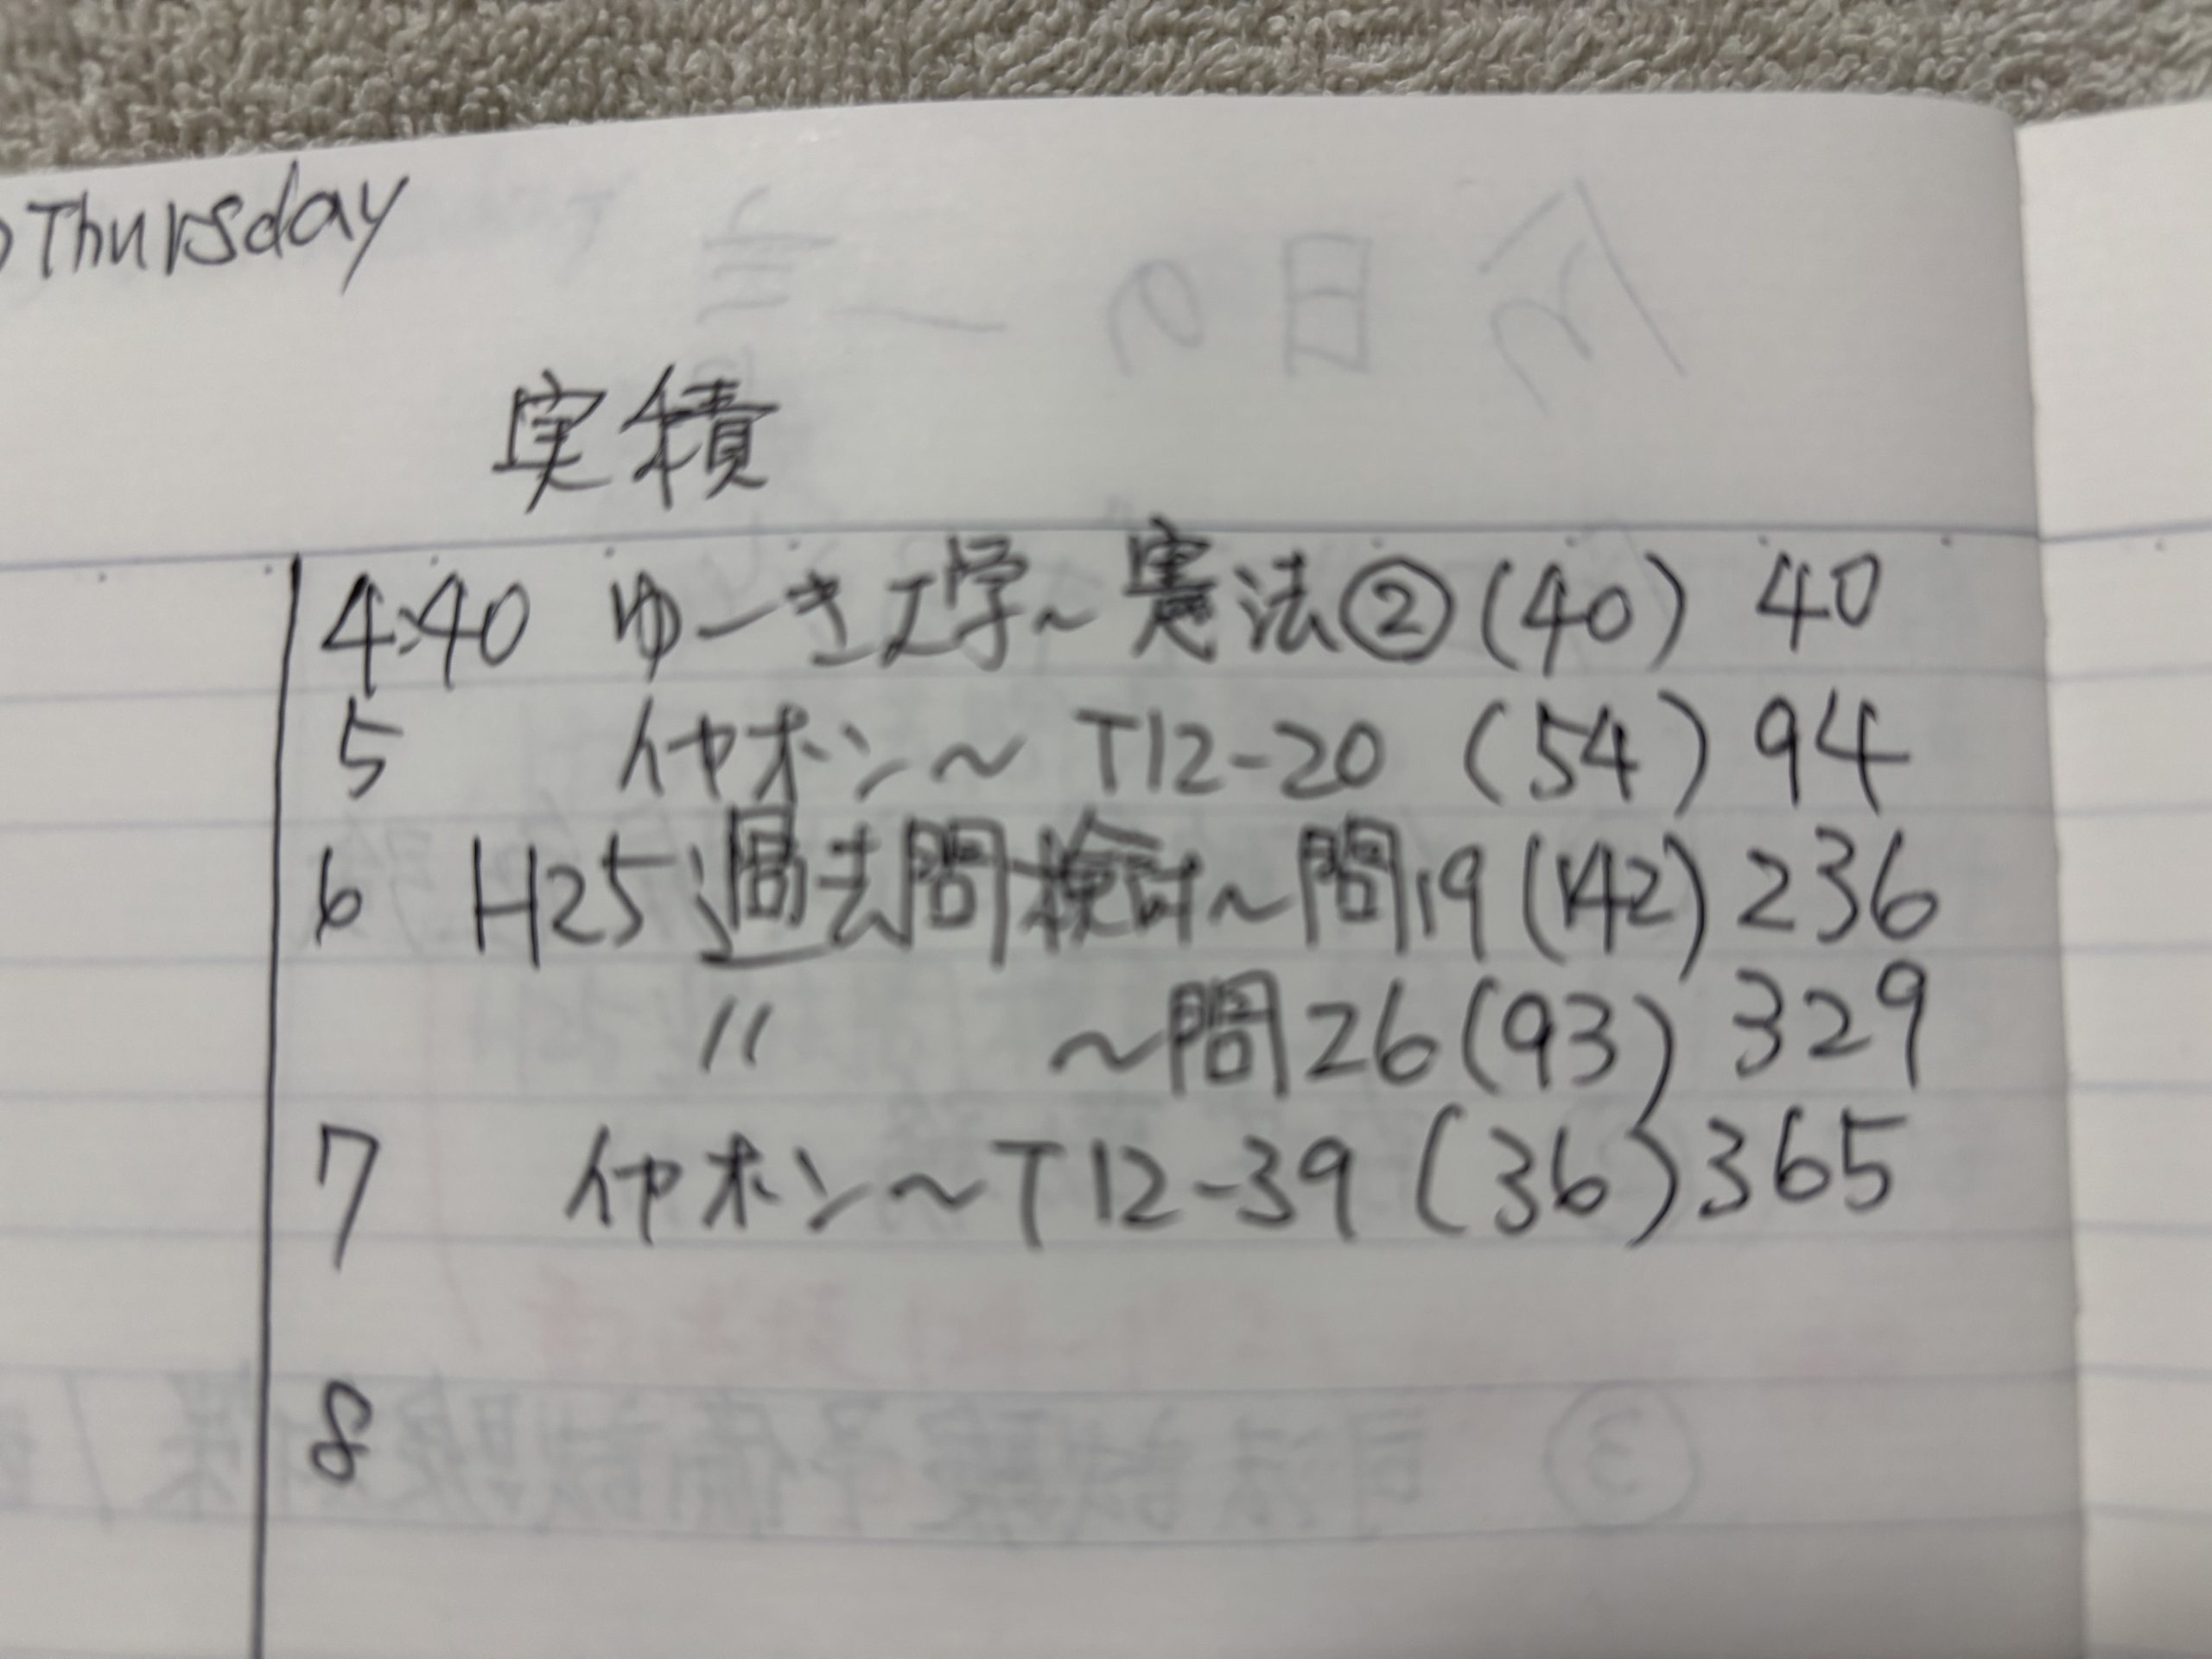 Thursday
実積
4:40 ゆーき大学～憲法② (40) 40
5 イヤホン～ T12-20 (54) 94
6 H25過去問検討～問19 (142) 236
〃 ～問26 (93) 329
7 イヤホン～T12-39 (36) 365
8